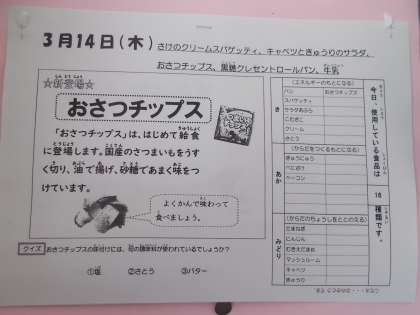 3月14日(木) さけのクリームスパゲッティ、キャベツときゅうりのサラダ、
おさつチップス、黒糖クレセントロールパン、牛乳
☆新登場☆
おさつチップス
「おさつチップス」は、はじめて給食
に登場します。国産のさつまいもをうす
く切り、油で揚げ、砂糖であまく味をつ
けています。
よくかんで味わって
食べましょう。
クイズ おさつチップスの味付けには、何の調味料が使われているでしょうか?
①塩 ②さとう ③バター
今日、使用している食品は 16 種類です。
き
(エネルギーのもとになる)
パン おさつチップス
スパゲッティ
サラダあぶら
こむぎこ
クリーム
さとう
あか
(からだをつくるもとになる)
ぎゅうにゅう
べにざけ
ベーコン
みどり
(からだのちょうしをととのえる)
たまねぎ
にんじん
むきえだまめ
マッシュルーム
キャベツ
きゅうり